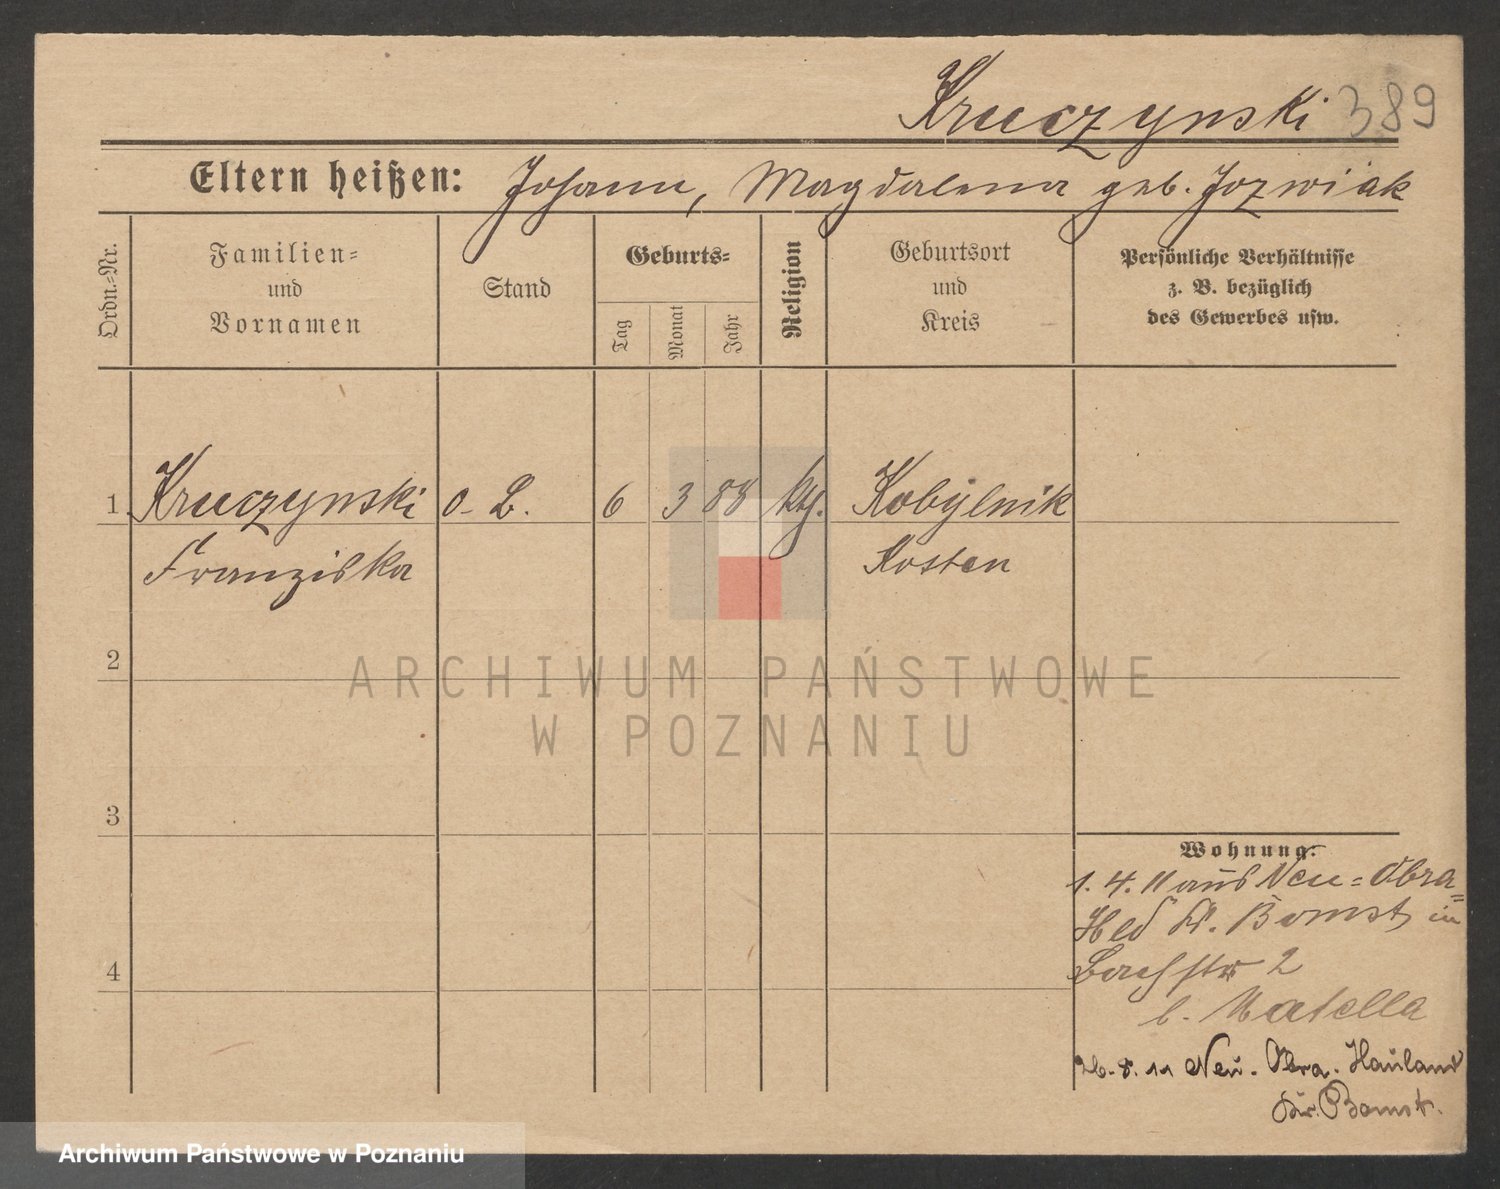 Kruczynski 389
Eltern heißen: Johann, Magdalena geb. Jozwiak
Ordn.=Nr.
Familien=
und
Vornamen
Stand
Geburts=
Tag
Monat
Jahr
Religion
Geburtsort
und
Kreis
Persönliche Verhältnisse
z. B. bezüglich
des Gewerbes usw.
1. Kruczynski o. B. 6 3 88 kth. Kobylnik
Franziska Kosten
2
3
4
ARCHIWUM PAŃSTWOWE
W POZNANIU
Wohnung:
1. 4. 11 aus Neu=Obra=
Hld Kr. Bomst in
Bachstr 2
b. Matella
26. 8. 11 Neu. Obra. Hauland
Kr. Bomst.
Archiwum Państwowe w Poznaniu